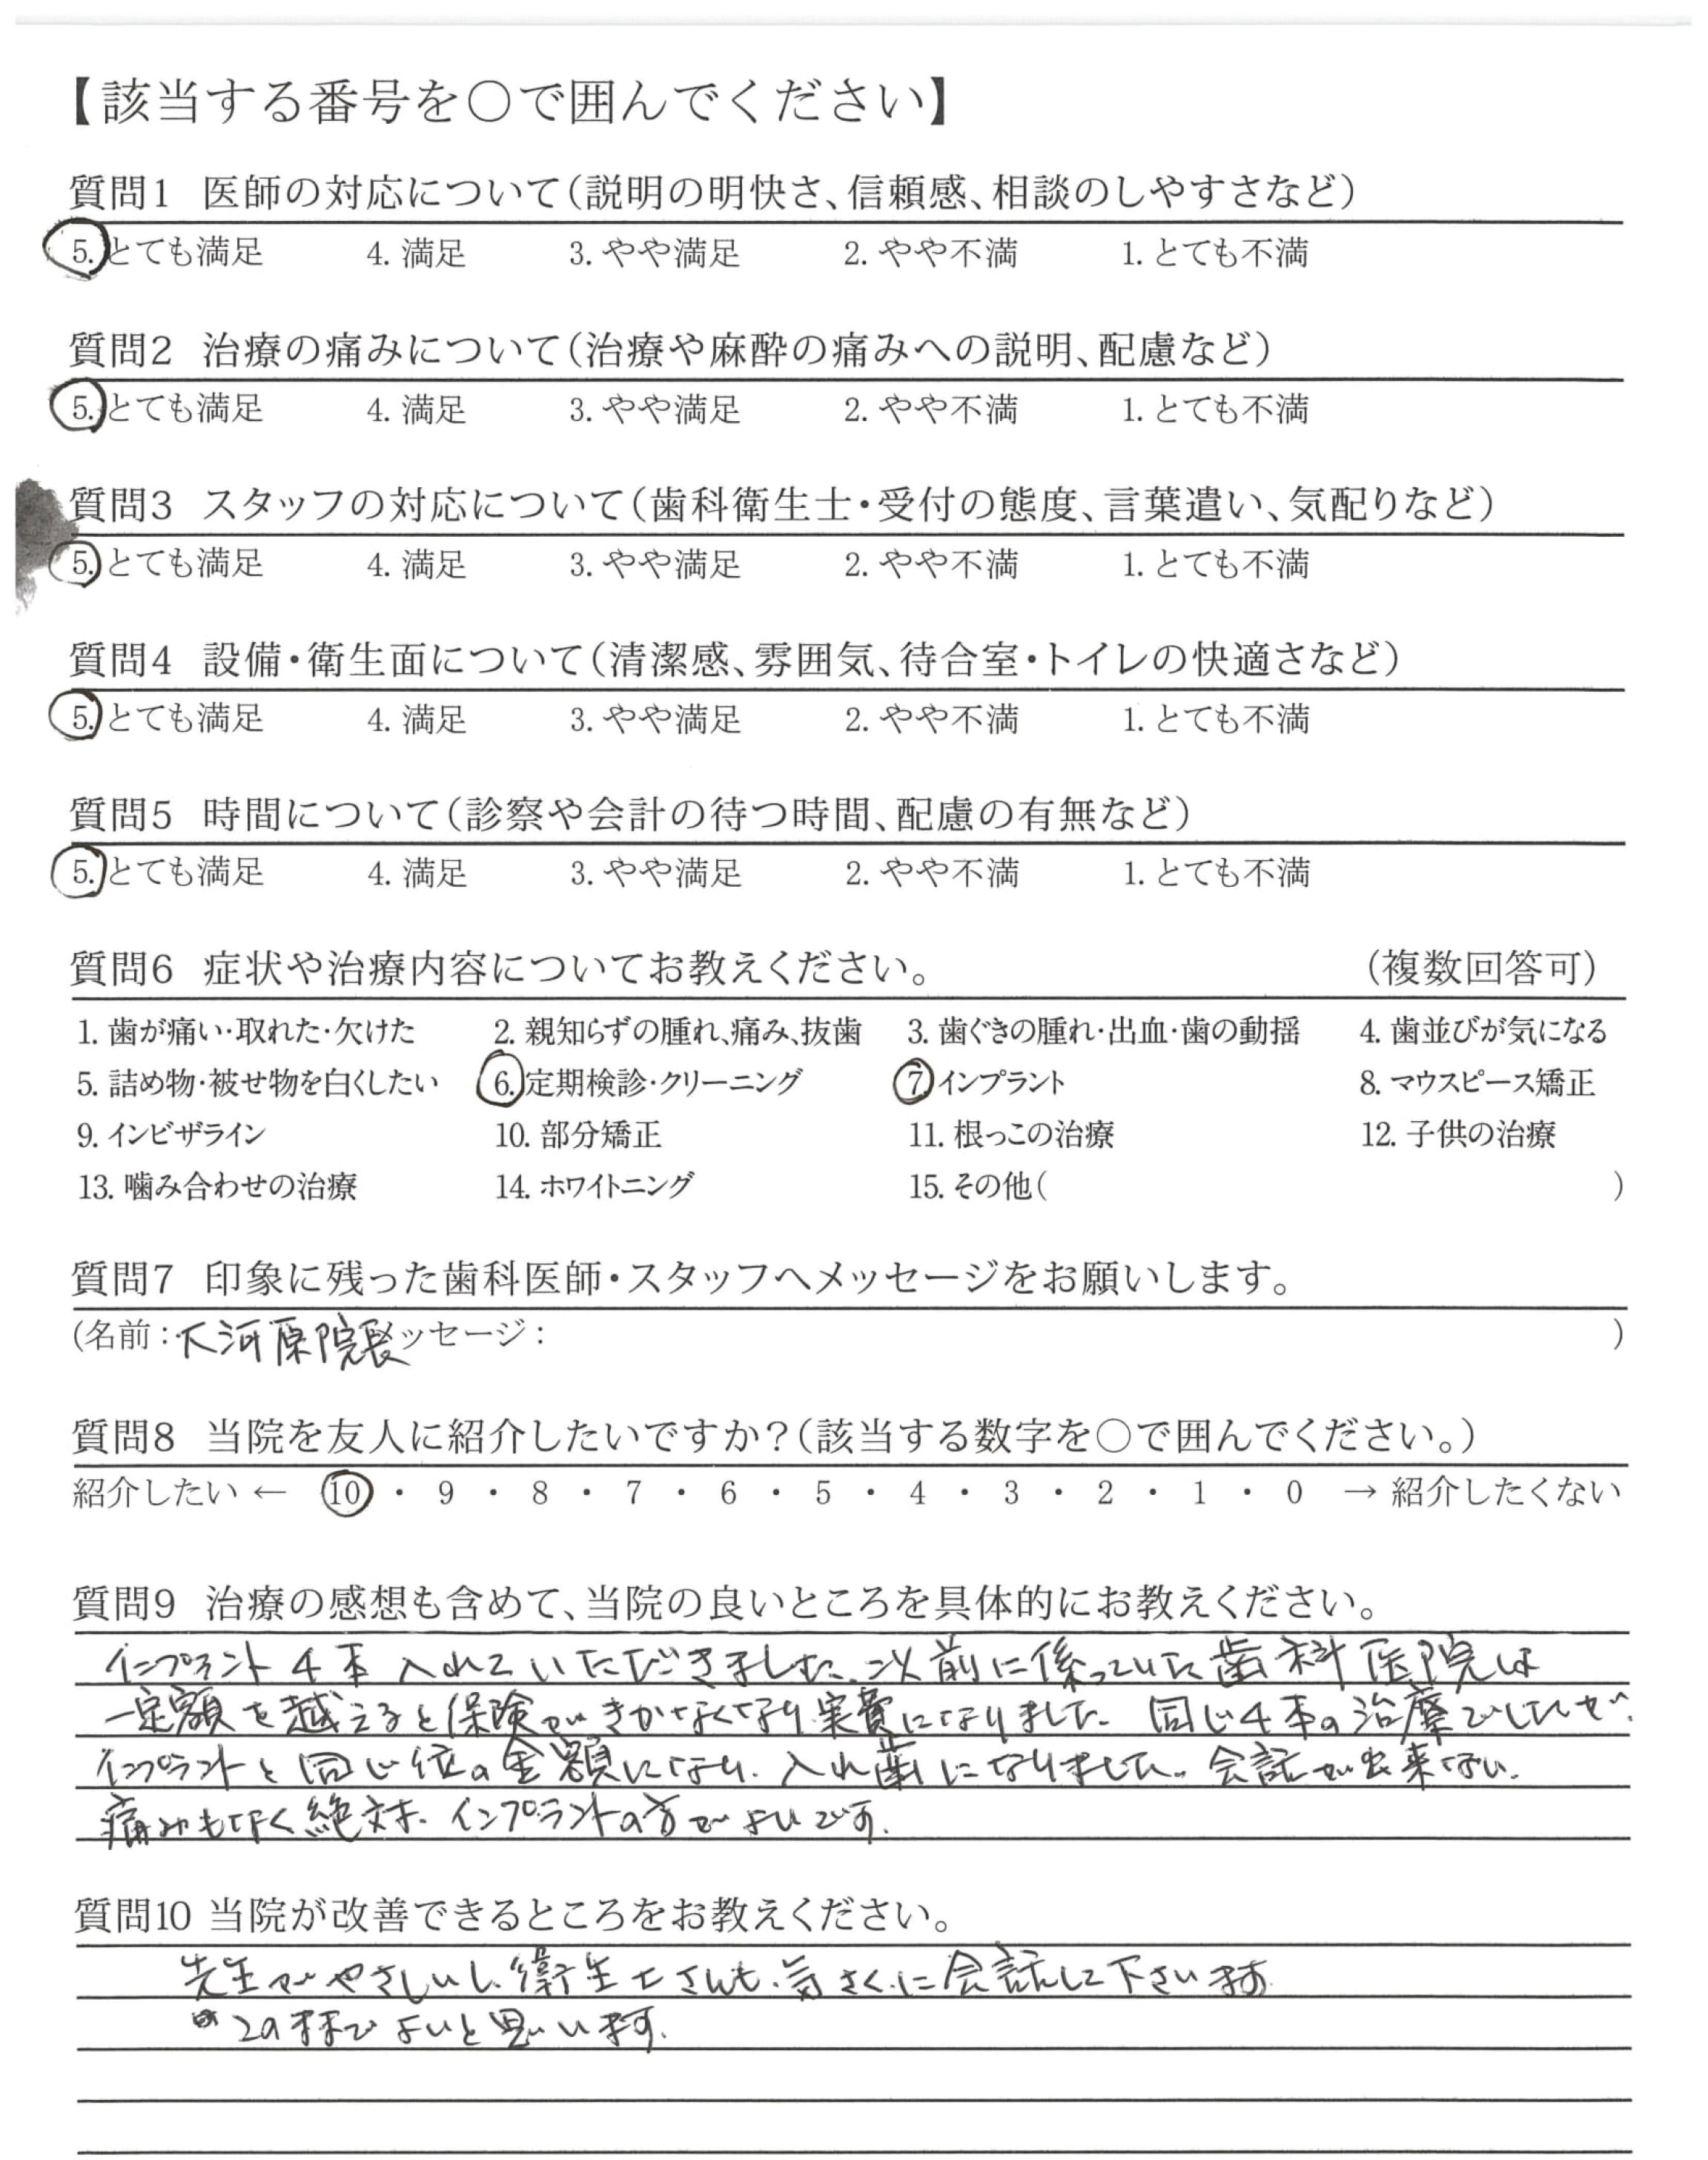 【該当する番号を○で囲んでください】
質問1 医師の対応について(説明の明快さ、信頼感、相談のしやすさなど)
5. とても満足 4. 満足 3. やや満足 2. やや不満 1. とても不満
質問2 治療の痛みについて(治療や麻酔の痛みへの説明、配慮など)
5. とても満足 4. 満足 3. やや満足 2. やや不満 1. とても不満
質問3 スタッフの対応について(歯科衛生士・受付の態度、言葉遣い、気配りなど)
5. とても満足 4. 満足 3. やや満足 2. やや不満 1. とても不満
質問4 設備・衛生面について(清潔感、雰囲気、待合室・トイレの快適さなど)
5. とても満足 4. 満足 3. やや満足 2. やや不満 1. とても不満
質問5 時間について(診察や会計の待つ時間、配慮の有無など)
5. とても満足 4. 満足 3. やや満足 2. やや不満 1. とても不満
質問6 症状や治療内容についてお教えください。 (複数回答可)
1. 歯が痛い・取れた・欠けた 2. 親知らずの腫れ、痛み、抜歯 3. 歯ぐきの腫れ・出血・歯の動揺 4. 歯並びが気になる
5. 詰め物・被せ物を白くしたい 6. 定期検診・クリーニング 7. インプラント 8. マウスピース矯正
9. インビザライン 10. 部分矯正 11. 根っこの治療 12. 子供の治療
13. 噛み合わせの治療 14. ホワイトニング 15. その他( )
質問7 印象に残った歯科医師・スタッフへメッセージをお願いします。
(名前:大河原院長ッセージ: )
質問8 当院を友人に紹介したいですか?(該当する数字を○で囲んでください。)
紹介したい ← 10 ・ 9 ・ 8 ・ 7 ・ 6 ・ 5 ・ 4 ・ 3 ・ 2 ・ 1 ・ 0 → 紹介したくない
質問9 治療の感想も含めて、当院の良いところを具体的にお教えください。
インプラント4本入れていただきました、以前に係っていた歯科医院は
一定額を越えると保険がきかなくなり実費になりました。同じ4本の治療でしたが、
インプラントと同じ位の金額になり、入れ歯になりました。会話が出来ない、
痛みもなく絶対、インプラントの方がよいです。
質問10 当院が改善できるところをお教えください。
先生がやさしいし、衛生士さんも、気さくに会話して下さいます
このままでよいと思います。